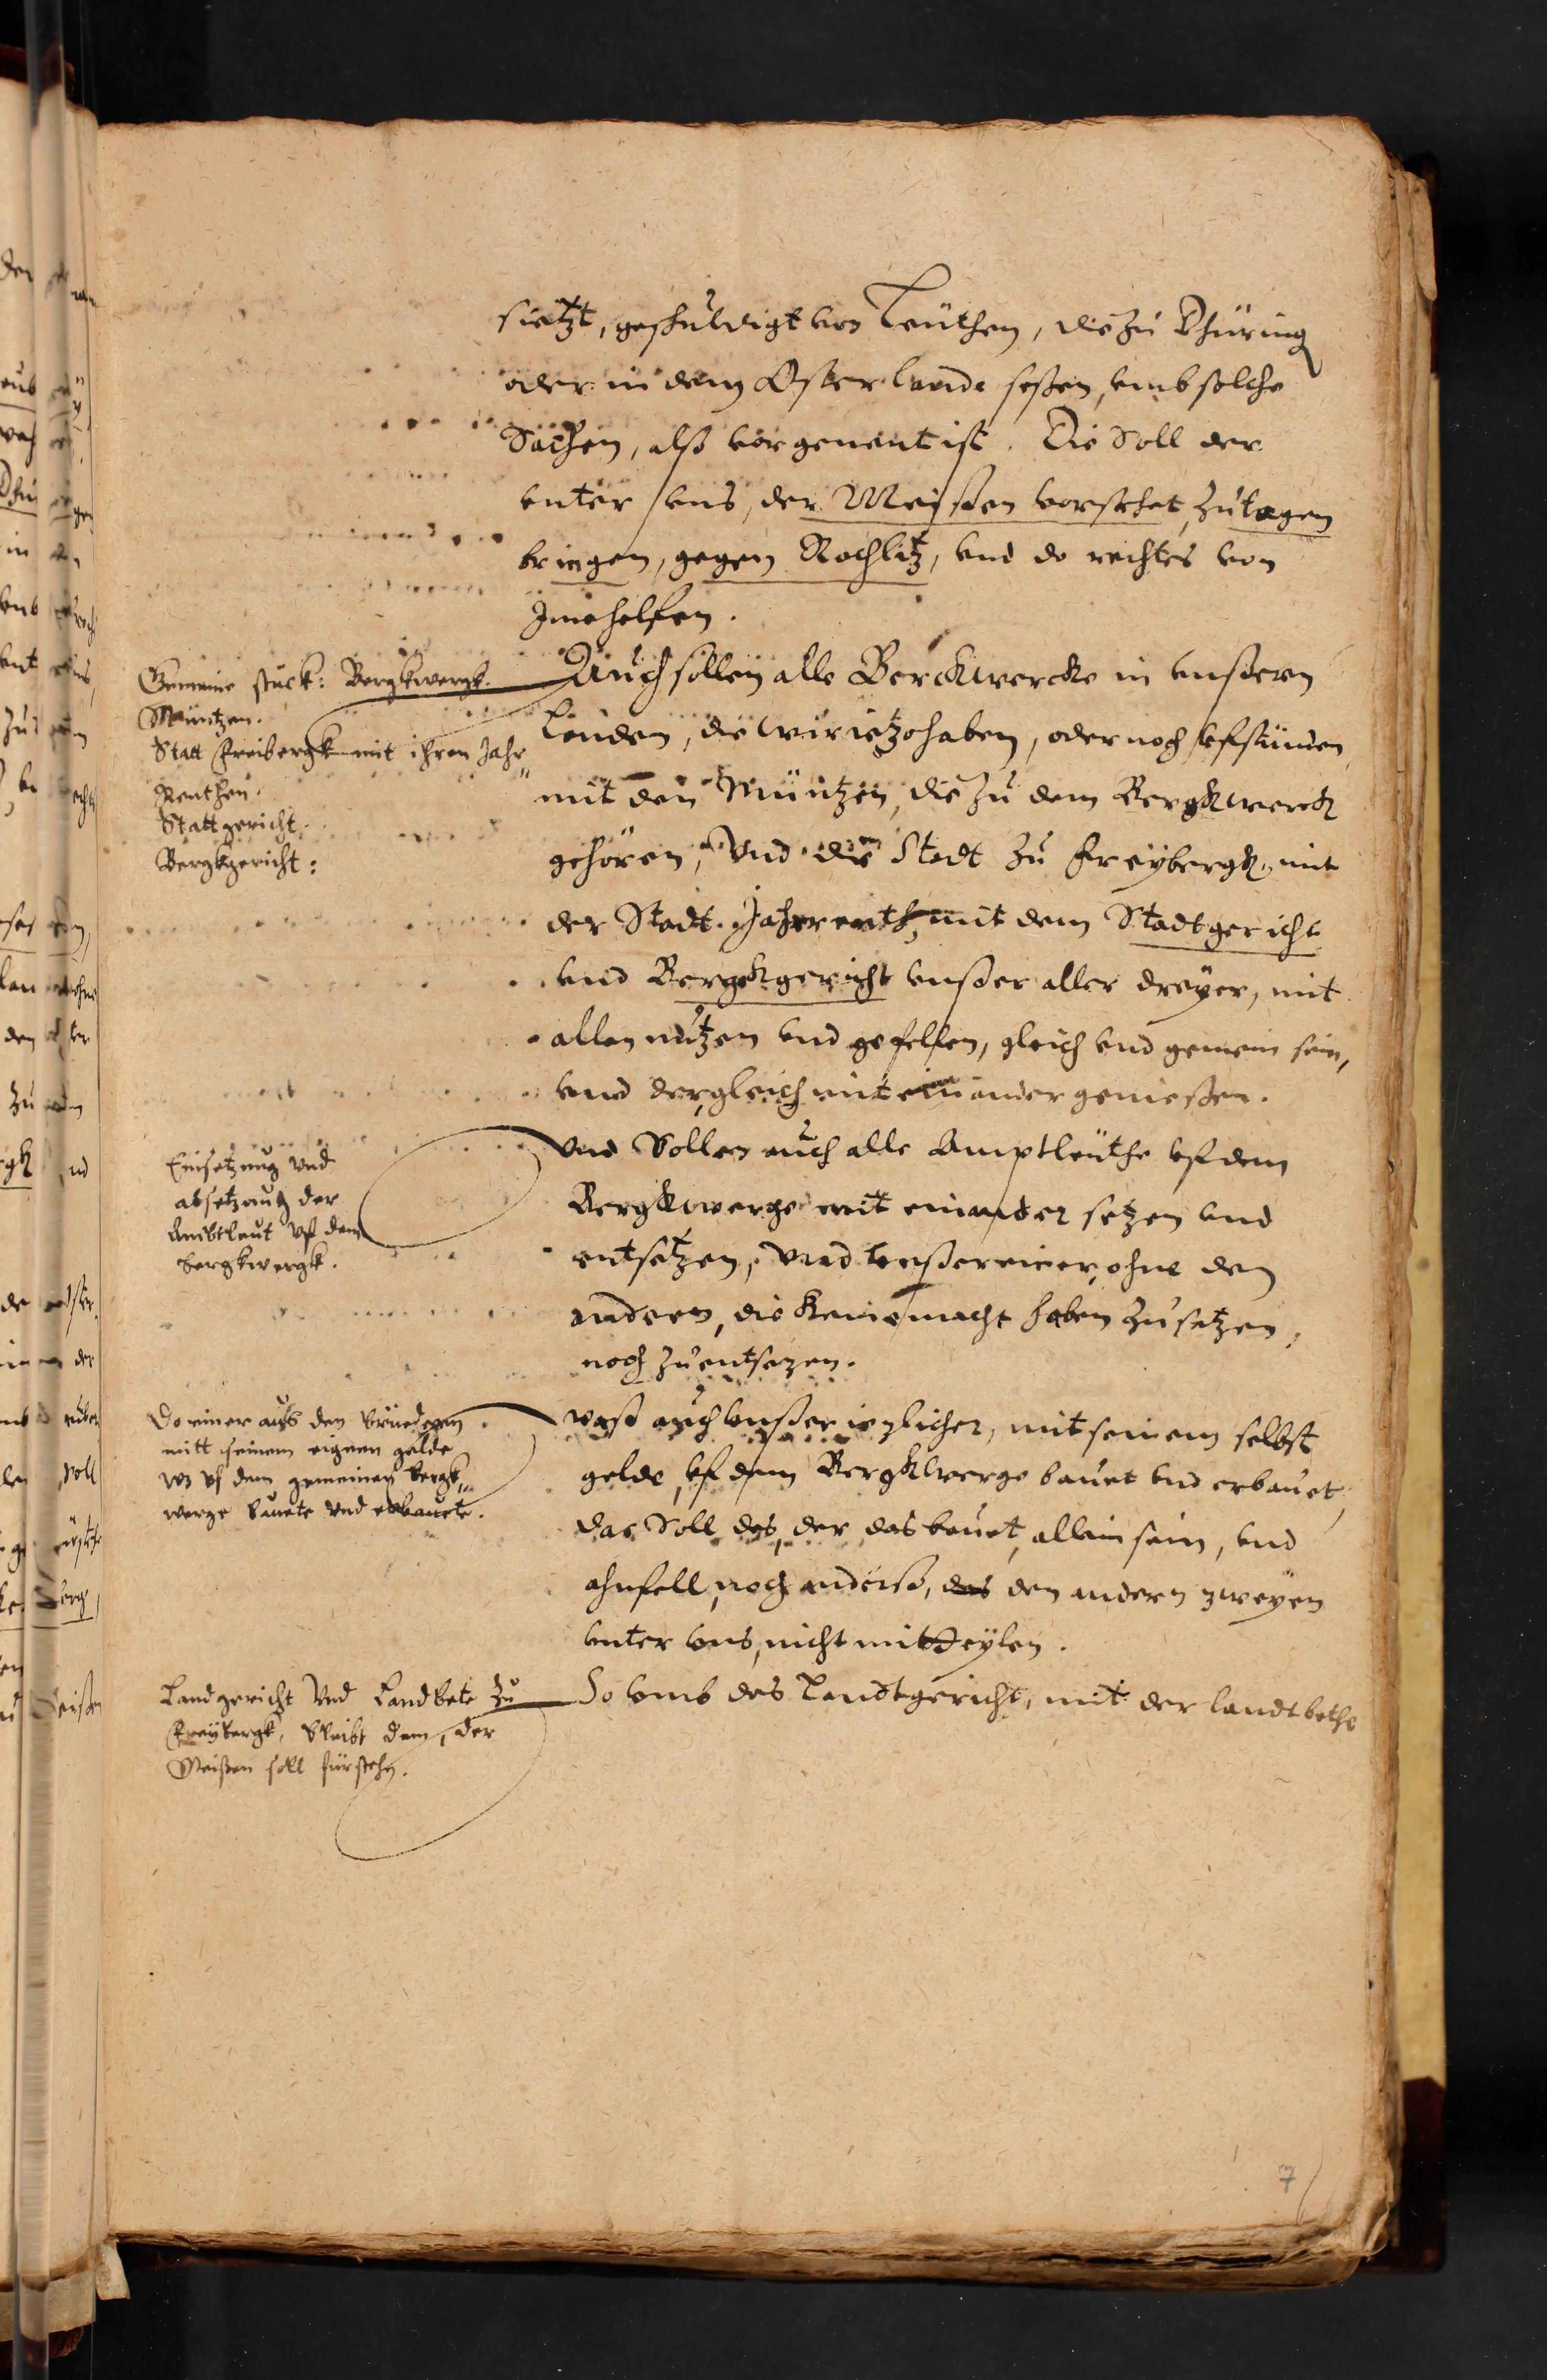 sietzt, geschuldigt von Leuthen, die zu Thüring
oder in dem Osterlande seßen, umb solche
Sachen, alß vorgenent ist. Die Soll der
vnter vns, der Meissen vorstehet, zutagen
bringen, gegen Rochlitz, vnd do rechtes von
Ime helfen.
Gemeine stuck: Bergkwergk.
Müntzen.
Statt Freibergk mit ihren Jahr
Renthen.
Stattgericht.
Bergkgericht:
Auch sollen alle Berckwercke in vnßern
Landen, die wir ietzo haben, oder noch vfstünden,
mit den Müntzen, die zu dem Bergkwerck
gehören, Vnd die Stadt zu Freybergk, mit
der Stadt Jahrrenth, mit dem Stadtgericht
vnd Bergkgericht vnßer aller dreyer, mit
allen nutzen vnd gefellen, gleich vnd gemein sein,
vnd der gleich mit einander genießen.
Einsetzung vnd
absetzung der
Ambtleut vf dem
bergkwergk.
Vnd Sollen auch alle Amptleuthe vf dem
Bergkwerge mit einander setzen vnd
entsetzen, Vnd vnßer einer, ohne den
andern, die keine macht haben zu setzen,
noch zu entsezen.
Do einer aus den brüedern
mitt seinem eignen gelde
vf dem gemeinen bergk
werge bauete vnd erbauete.
waß auch vnßer ieglicher, mit seinem selbst
gelde, vf dem Bergkwerge bauet vnd erbauet,
das Soll des, der das bauet, allein sein, vnd
ahnfall, noch anderß, das den andern zweyen
vnter vns, nicht mitteylen.
Landgericht Vnd Landbete zu
Freybergk, bleibt dem, der
Meißen soll fürstehn.
So vmb das Landtgericht, mit der landtbethe
7